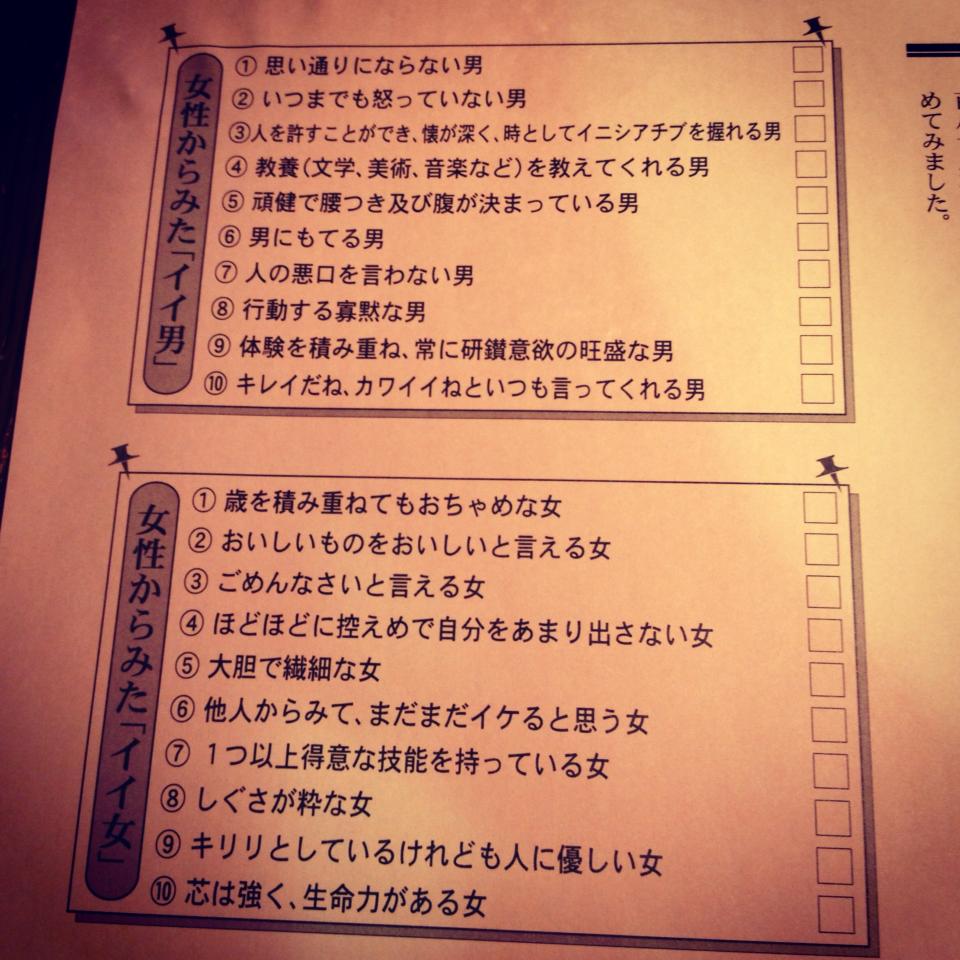 女性からみた「イイ男」
① 思い通りにならない男
② いつまでも怒っていない男
③人を許すことができ、懐が深く、時としてイニシアチブを握れる男
④ 教養(文学、美術、音楽など)を教えてくれる男
⑤ 頑健で腰つき及び腹が決まっている男
⑥ 男にもてる男
⑦ 人の悪口を言わない男
⑧ 行動する寡黙な男
⑨ 体験を積み重ね、常に研鑽意欲の旺盛な男
⑩ キレイだね、カワイイねといつも言ってくれる男
女性からみた「イイ女」
① 歳を積み重ねてもおちゃめな女
② おいしいものをおいしいと言える女
③ ごめんなさいと言える女
④ ほどほどに控えめで自分をあまり出さない女
⑤ 大胆で繊細な女
⑥ 他人からみて、まだまだイケると思う女
⑦ 1つ以上得意な技能を持っている女
⑧ しぐさが粋な女
⑨ キリリとしているけれども人に優しい女
⑩ 芯は強く、生命力がある女
めてみました。